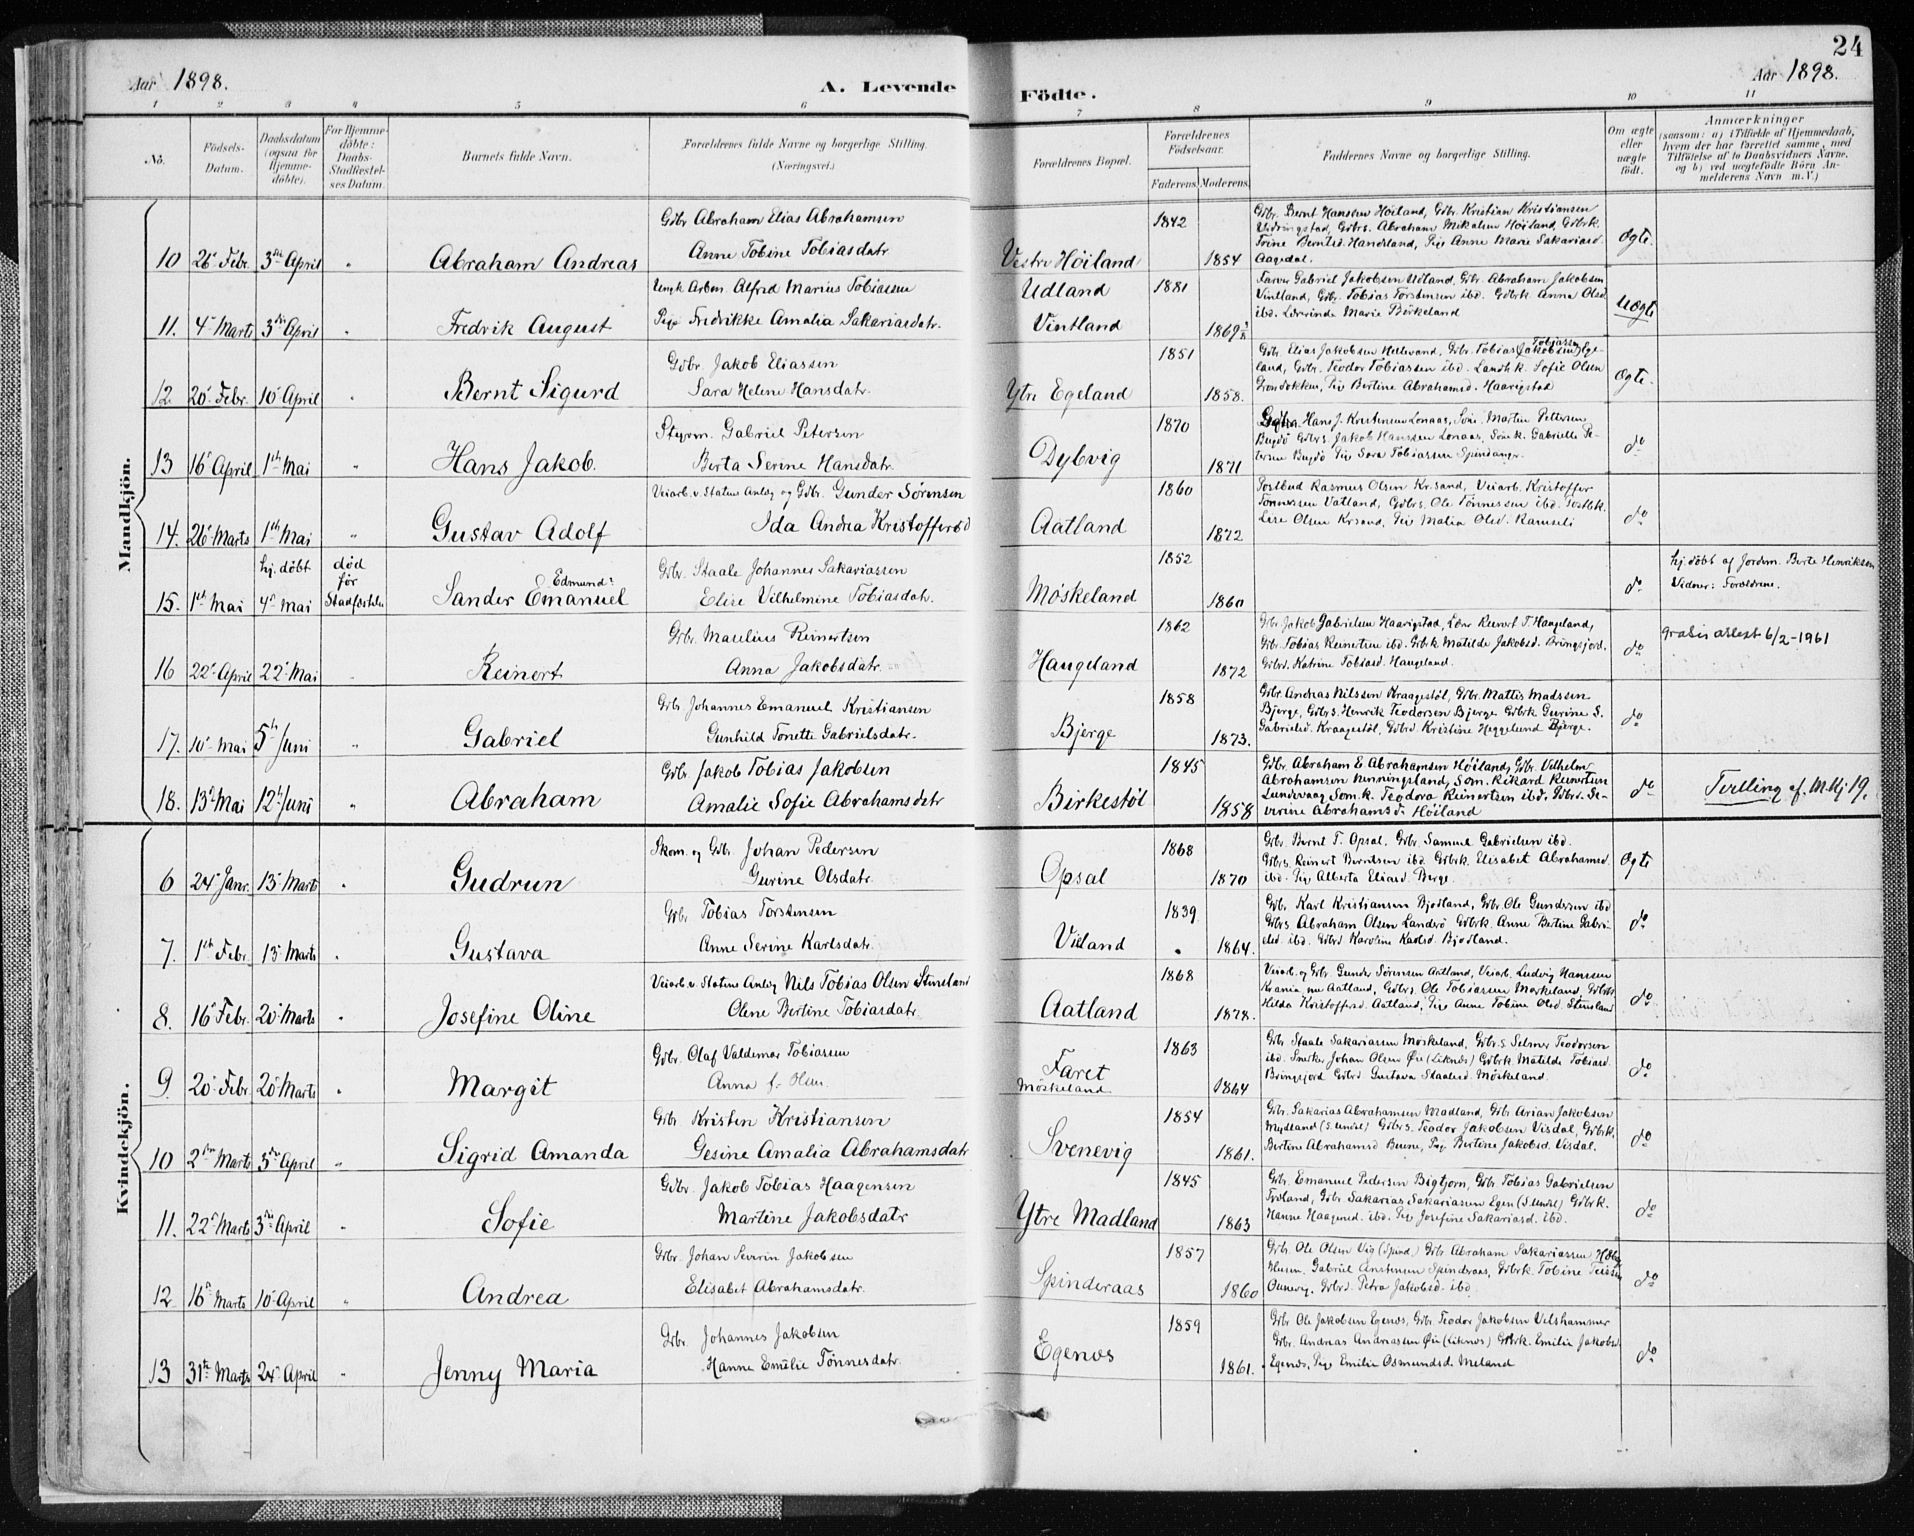 24
Aar 1898.
A. Levende Födte.
Aar 1898.
1 2 3 4 5 6 7 8 9 10 11
No.
Födsels-
Datum.
Daabsdatum
(ogsaa for
Hjemme-
döbte).
For Hjemme-
döbte:
Daabs-
Stadfæstel-
ses Datum.
Barnets fulde Navn.
Forældrenes fulde Navne og borgerlige Stilling.
(Næringsvei.)
Forældrenes Bopæl.
Forældrenes
Födselsaar.
Faderens. Moderens.
Faddernes Navne og borgerlige Stilling.
Om ægte
eller
uægte
födt.
Anmærkninger
(saasom: a) i Tilfælde af Hjemmedaab,
hvem der har forrettet samme, med
Tilföielse af to Daabsvidners Navne,
og b) ved uægtefödte Börn An-
melderens Navn m. V.)
Mandkjön.
10 26 Febr. 3die April " Abraham Andreas
Gdbr Abraham Elias Abrahamsen
Anne Tobine Tobiasdatr
Vestre Höiland 1842 1854
Gdbr. Bernt Hanssen Höiland, Gdbr. Kristian Kristiansen
Gdbrs. Abraham Mikalsen Höiland, Gdbrk.
Trine Berntsd. Handeland, Pige Anne Marie Sakariasd.
Aagedal.
Ægte.
11. 4de Marts 3die April " Fredrik August
Ungk Arben. Alfred Marius Tobiassen
Pige Fredrikke Amalia Sakariasdatr.
Udland
Vintland 1881 1869
Farver Gabriel Jakobsen Udland, Gdbr. Abraham Jakobsen
Vintland, Gdbr. Tobias Torstensen ibd. Gdbrk Anna Olsd
ibd. Lærerinde Marie Birkeland
Uægte
12 20de Febr. 10de April " Bernt Sigurd
Gdbr. Jakob Eliassen
Sara Helene Hansdatr.
Ytre Egeland 1851 1858.
Gdbr. Elias Jakobsen Hellevand, Gdbr. Tobias (Jakobsen) Tobiassen Ege-
land, Gdbr. Teodor Tobiassen ibd. Landh.k. Sofie Olsen
Grøndokken, Pig Bertine Abrahamsd. Haarigstad
Ægte.
13 16de April 1ste Mai " Hans Jakob.
Styrm. Gabriel Petersen
Berta Serine Hansdatr.
Dybvig 1870 1871
Gdbr. Hans J. Kristensen Lonaas, Martin Pettersen
Bugdö Gdbrs. Jakob Hanssen Lonaas, Söm.k. Gabrielle Pe-
tersen Bugdö Pige Sara Tobiassen Spindanger.
do
14. 26de Marts 1ste Mai " Gustav Adolf
Veiarb. v. Statens Anlæg og Gdbr. Gunder Sørensen
Ida Andrea Kristoffersd
Aatland 1860 1872
Postbud Rasmus Olsen Kr.sand, Veiarb. Kristoffer
Tønnessen Vatland, Gdbrs. Ole Tønnessen ibd. Postb.k.
Lise Olsen Krsand, Pige Malia Olsd. Ramsli
do
15. 1ste Mai hj. döbt 4de Mai død før Stadfæstelse
Sander Edmund Emanuel
Gdbr. Staale Johannes Sakariassen
Elise Vilhelmine Tobiasdatr.
Møskeland 1852 1860
do
hj. döbt af Jordem. Berte Henriksen
Vidner: Forældrene.
16 22de April 22de Mai Reinert
Gdbr. Maulius Reinertsen
Anna Jakobsdatr.
Haugeland 1862 1872
Gdbr. Jakob Gabrielsen Haarigstad, Lærer Reinert T. Haugeland,
Gdbr. Tobias Reinertsen ibd. Gdbrk Matilde Jakobsd. Bringsjord.
Gdbrd. Katrine Tobiasd. Haugeland.
do
gratis attest 6/2-1961
17. 10de Mai 5te Juni " Gabriel
Gdbr. Johannes Emanuel Kristiansen
Gunhild Tonette Gabrielsdatr.
Bjerge 1858 1873.
Gdbr. Andreas Nilssen Kraagestöl, Gdbr. Mattis Madssen
Bjerge, Gdbrs. Henrik Teodorsen Bjerge Gdbrk Gurine S.
Gabrielsd. Kraagestöl, Gdbrd Kristine Heggelund Bjerge.
do
18. 13de Mai 12te Juni " Abraham
Gdbr. Jakob Tobias Jakobsen
Amalie Sofie Abrahamsdatr
Birkestöl 1845 1858
Gdbr. Abraham E Abrahamsen Höiland, Gdbr. Vilhelm
Abrahamsen Henningsland, Söm. Rikard Reinertsen
Lundevaag Söm.k. Teodora Reinertsen ibd. Gdbrd. Se-
verine Abrahamsd. Höiland
do
Tvilling af. M.Kj 19.
Kvindekjön.
6 24de Janr. 13de Marts " Gudrun
Skom. og Gdbr Johan Pedersen
Gurine Olsdatr.
Opsal 1868 1870
Gdbr. Bernt T. Opsal, Gdbr. Samuel Gabrielsen ibd.
Gdbrs. Reinert Berntsen ibd Gdbrk. Elisabet Abrahamsd.
ibd. Pige Alberta Eliasd. Berge.
Ægte
7. 1ste Febr. 13de Marts " Gustava
Gdbr Tobias Torstensen
Anne Serine Karlsdatr.
Vieland 1839 1864.
Gdbr. Karl Kristiansen Bjodland, Gdbr. Ole Gundersen ibd
Gdbrs Abraham Olsen Landerö Gdbrk. Anne Bertine Gabri-
elsd. ibd. Gdbrd Karoline Karlsd. Bjodland.
do
8. 16de Febr. 20de Marts " Josefine Oline
Veiarb. v. Statens Anlæg Nils Tobias Olsen Stensland
Olene Bertine Tobiasdatr.
Aatland 1868 1878.
Veiarb. og Gdbr. Gunder Sørensen Aatland, Veiarb. Ludvig Hanssen
Krania nu Aatland, Gdbrs. Ole Tobiassen Møskeland, Gdbrk
Hilda Kristoffersd. Aatland, Pige Anne Tobine Olsd. Stensland
do
9. 20de Febr. 20de Marts " Margit
Gdbr. Olaf Valdemar Tobiassen
Anna f. Olsen.
Faret
Møskeland 1863 1864
Gdbr Staale Sakariassen Møskeland, Gdbrs. Selmer Teodorsen
ibd. Snekker Johan Olsen Øie (Liknes) Gdbrk. Matilde Tobiasd.
Bringsjord Gdbrd Gustava Staalesd. Møskeland.
do
10 2den Marts 3die April " Sigrid Amanda
Gdbr Kristen Kristiansen
Gesine Amalia Abrahamsdatr
Svenevig 1854 1861.
Gdbr. Sakarias Abrahamsen Madland, Gdbr Arian Jakobsen
Mydland (S. Undal) Gdbrs. Teodor Jakobsen Visdal, Gdbrk.
Bertine Abrahamsd Pige Bertine Jakobsd. Visdal.
do
11. 22de Marts 3die April " Sofie
Gdbr. Jakob Tobias Haagensen
Martine Jakobsdatr
Ytre Madland 1845 1863
Gdbr. Emanuel Pedersen Bigbjorn, Gdbr Tobias Gabrielsen
Tröland, Gdbr Sakarias Sakariasen Egen (S. Undal) Gdbrk.
Hanne Haagensd. ibd. Pige Josefine Sakariasd. ibd.
do
12 16de Marts 10de April " Andrea
Gdbr. Johan Severin Jakobsen
Elisabet Abrahamsdatr.
Spinderaas 1857 1860
Gdbr. Ole Olsen Vig (Spind.) Gdbr Abraham Sakariassen
Husm. Gabriel Anstensen Spinderaas, Gdbrk. Tobine
Gdbrd. Petra Jakobsd. ibd.
do
13 31te Marts 24de April " Jenny Maria
Gdbr. Johannes Jakobsen
Hanne Emilie Tønnesdatr.
Egenes 1859 1861.
Gdbr Ole Jakobsen Egenes, Gdbr. Teodor Jakobsen Velshammer
Gdbr. Andreas Andreassen Øie (Liknes) Gdbrk. Emilie Jakobsd.
Egenes. Pige Emilie Osmundsd. Meland
do